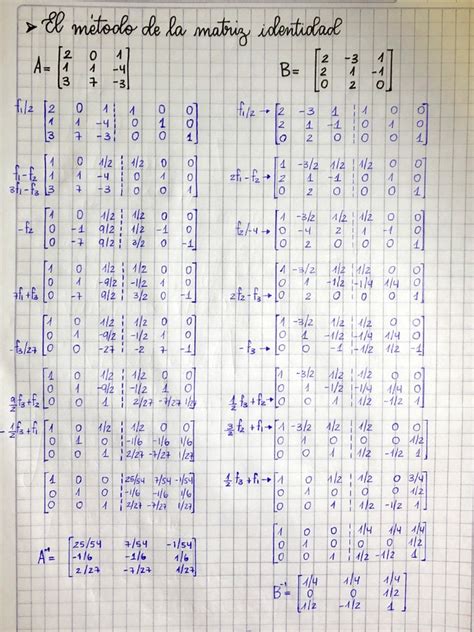 > El método de la matriz identidad
A= [2 0 1
1 1 -4
3 7 -3]
f1/2 [2 0 1 1 0 0
1 1 -4 0 1 0
3 7 -3 0 0 1]
f1-f2
3f1-f3 [1 0 1/2 1/2 0 0
1 1 -4 0 1 0
3 7 -3 0 0 1]
-f2 [1 0 1/2 1/2 0 0
0 -1 9/2 1/2 -1 0
0 -7 9/2 3/2 0 -1]
7f1+f3 [1 0 1/2 1/2 0 0
0 1 -9/2 -1/2 1 0
0 -7 9/2 3/2 0 -1]
-f3/27 [1 0 1/2 1/2 0 0
0 1 -9/2 -1/2 1 0
0 0 -27 -2 7 -1]
9/2 f3+f2 [1 0 1/2 1/2 0 0
0 1 -9/2 -1/2 1 0
0 0 1 2/27 -7/27 1/27]
-1/2 f3+f1 [1 0 1/2 1/2 0 0
0 1 0 -1/6 -1/6 1/6
0 0 1 2/27 -7/27 1/27]
[1 0 0 25/54 7/54 -1/54
0 1 0 -1/6 -1/6 1/6
0 0 1 2/27 -7/27 1/27]
A⁻¹= [25/54 7/54 -1/54
-1/6 -1/6 1/6
2/27 -7/27 1/27]
B= [2 -3 1
2 1 -1
0 2 0]
f1/2→ [2 -3 1 1 0 0
2 1 -1 0 1 0
0 2 0 0 0 1]
2f1-f2→ [1 -3/2 1/2 1/2 0 0
2 1 -1 0 1 0
0 2 0 0 0 1]
f2/-4→ [1 -3/2 1/2 1/2 0 0
0 -4 2 1 -1 0
0 2 0 0 0 1]
2f2-f3→ [1 -3/2 1/2 1/2 0 0
0 1 -1/2 -1/4 1/4 0
0 2 0 0 0 1]
-f3→ [1 -3/2 1/2 1/2 0 0
0 1 -1/2 -1/4 1/4 0
0 0 -1 -1/2 1/2 -1]
1/2 f3+f2→ [1 -3/2 1/2 1/2 0 0
0 1 -1/2 -1/4 1/4 0
0 0 1 1/2 -1/2 1]
3/2 f2+f1→ [1 -3/2 1/2 1/2 0 0
0 1 0 0 0 1/2
0 0 1 1/2 -1/2 1]
1/2 f3+f1→ [1 0 1/2 1/2 0 3/4
0 1 0 0 0 1/2
0 0 1 1/2 -1/2 1]
[1 0 0 1/4 1/4 1/4
0 1 0 0 0 1/2
0 0 1 1/2 -1/2 1]
B⁻¹= [1/4 1/4 1/4
0 0 1/2
1/2 -1/2 1]